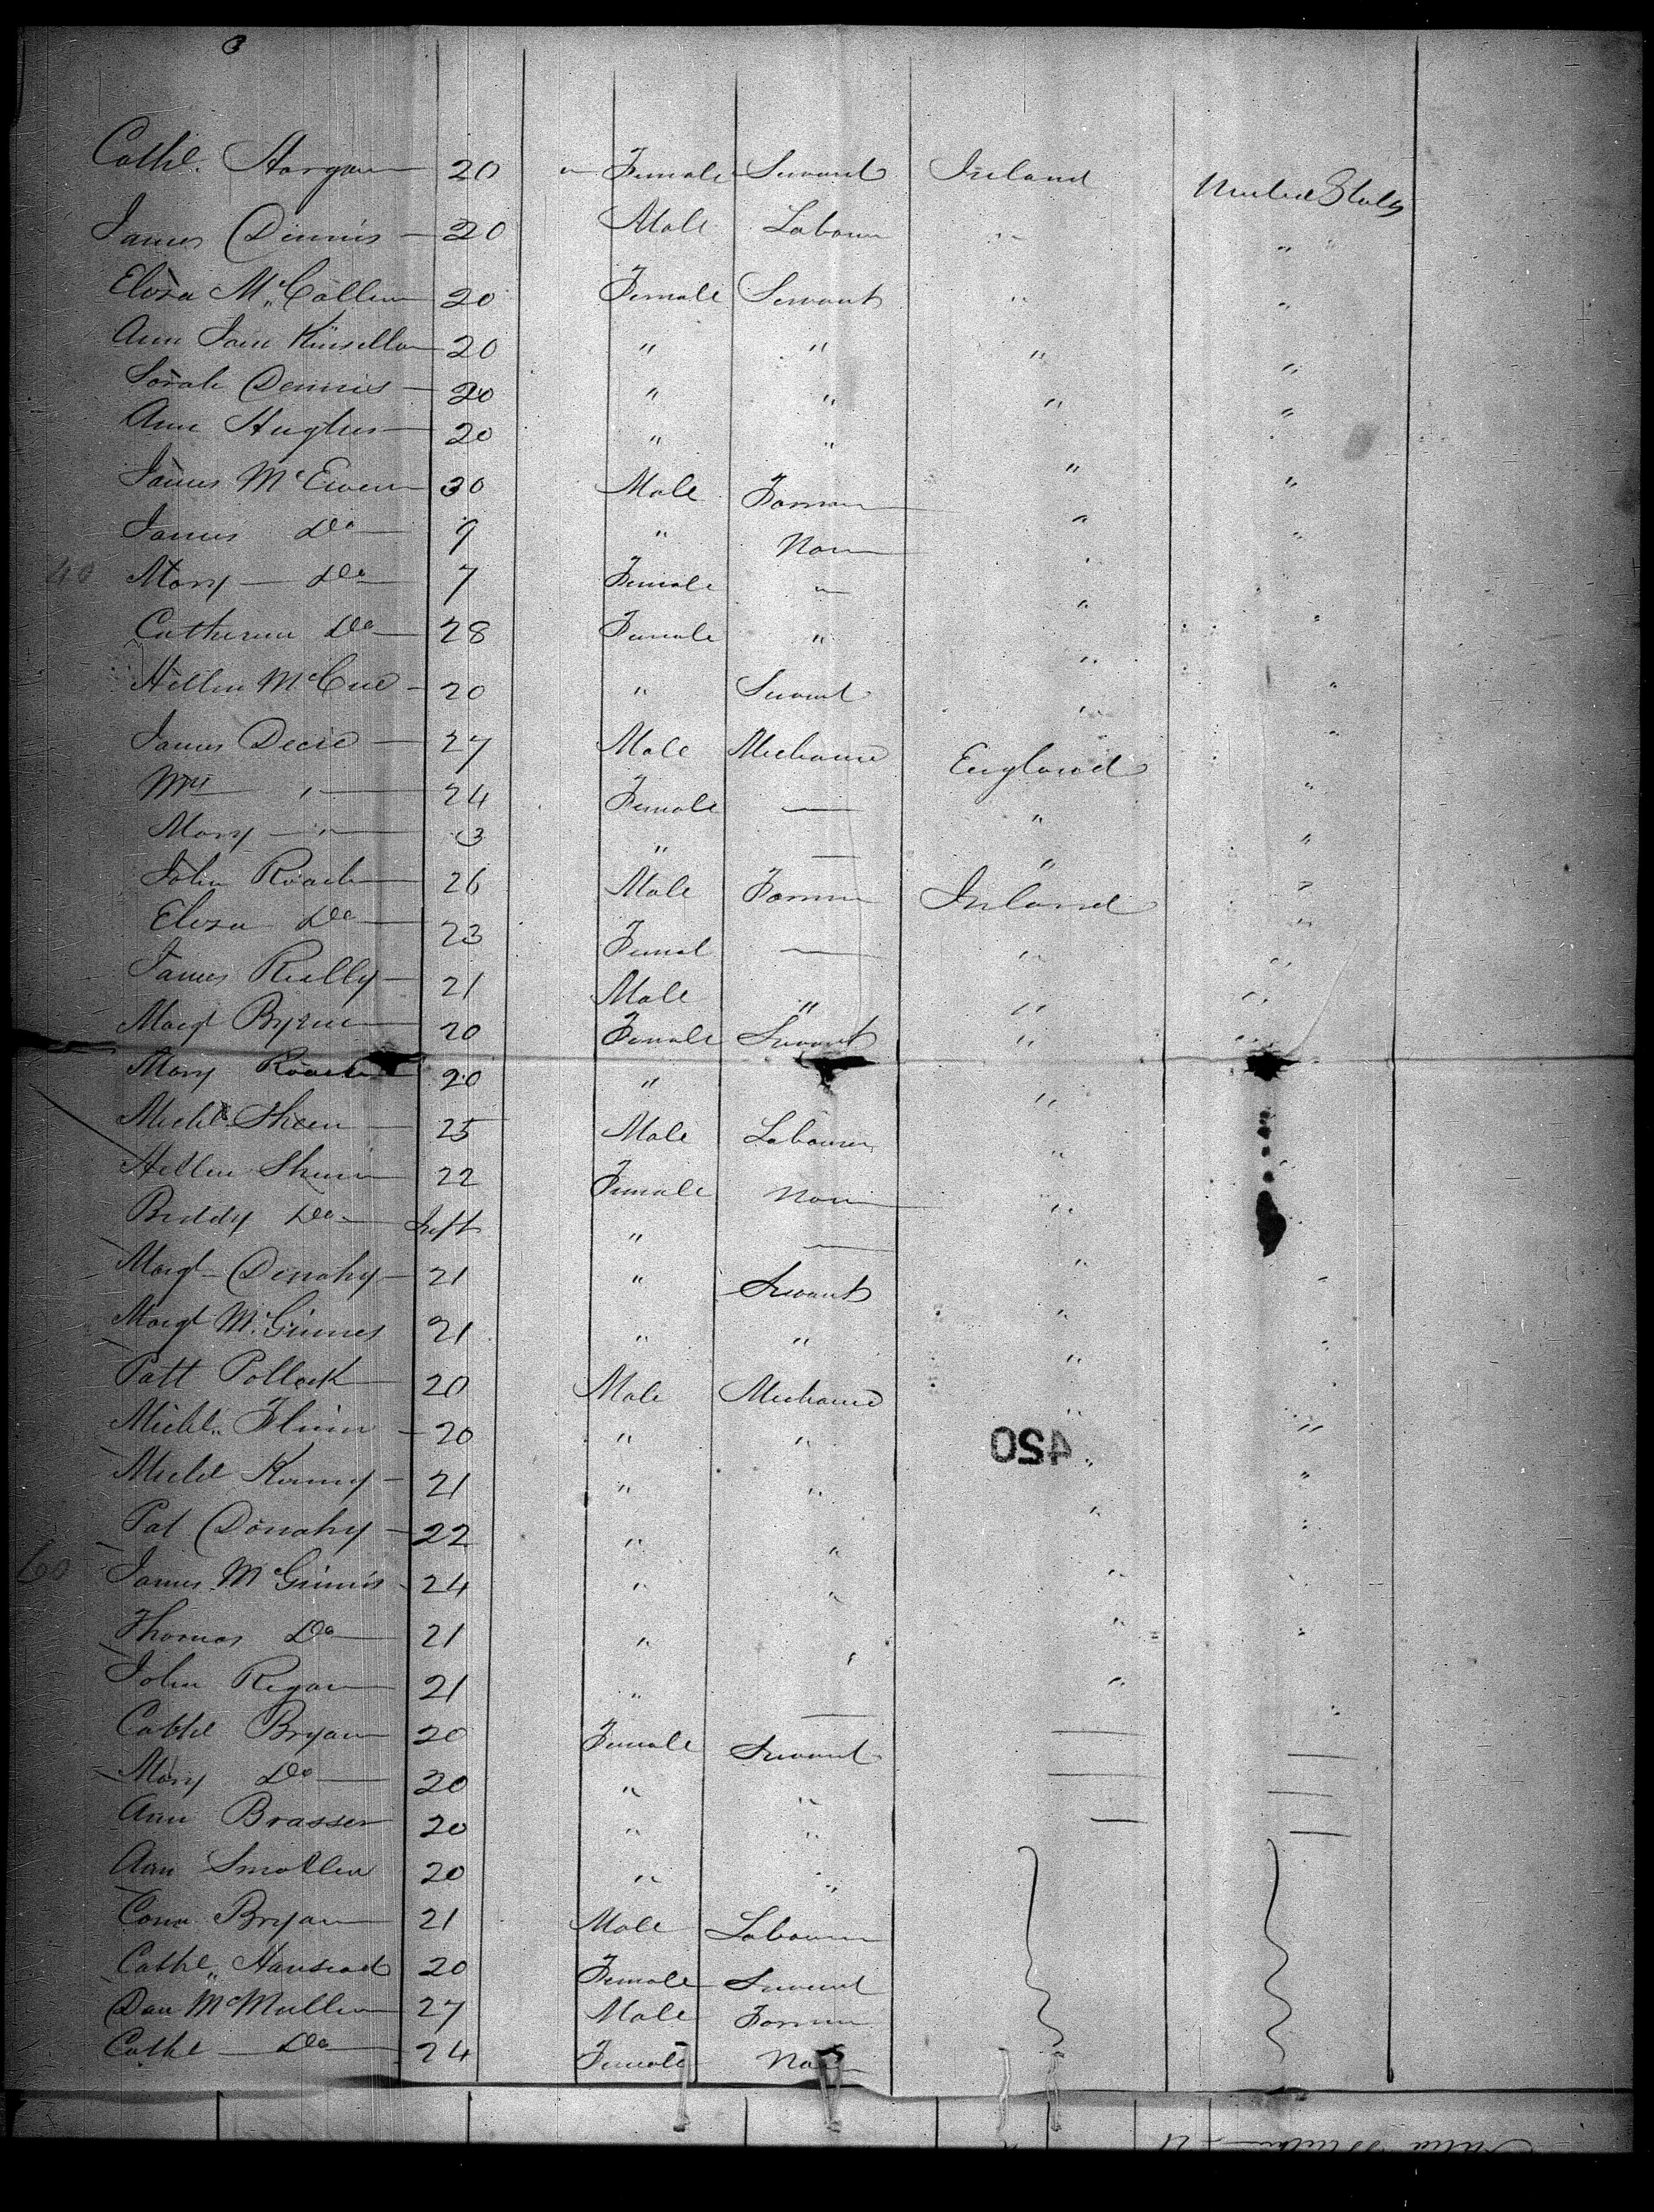 3
Cathe. Horgan 20 " Female Servant Ireland United States
James Dinnis 20 Male Labourer " "
Eliza McCollin 20 Female Servant " "
Ann Jane Kinsella 20 " " " "
Sarah Dennis 20 " " " "
Ann Hughes 20 " " " "
James McEwen 30 Male Farmer " "
James Do 9 " None " "
40 Mary Do 7 Female " " "
Catherine Do 28 Female " " "
Hellen McCue 20 " Servant " "
James Decie 27 Male Mechanic England "
Mrs " 24 Female — " "
Mary " 3 " — " "
John Roach 26 Male Farmer Ireland "
Eliza Do 23 Femal — " "
James Reilly 21 Male " " "
Margt Byrne 20 Female Servant " "
Mary Roach 20 " "
Michl Sheen 25 Male Labourer "
Hellen Sheen 22 Female None "
Biddy Do Inft " — "
Margt Donahy 21 " Servant " "
Margt McGinnes 21 " " " "
Patt Pollock 20 Male Mechanic " "
Michl. Flinn 20 " " " "
420
Michl Kenny 21 " " " "
Pat Donahy 22 " " " "
60 James McGinnis 24 " " " "
Thomas Do 21 " " " "
John Regan 21 " — " "
Cathe Bryan 20 Female Servant — —
Mary Do 20 " " — —
Ann Brasser 20 " " — —
Ann Smollen 20 " "
Conn Bryan 21 Male Labourer
Cathe 20 Female Servant
Dan McMullen 27 Male Farmer
Cathe Do 24 Female None